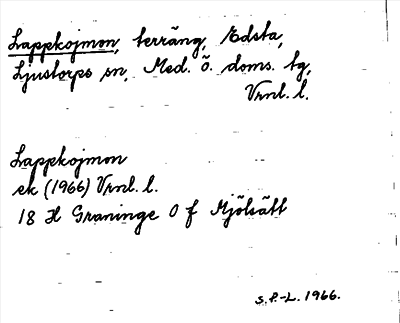 Lappkojmon, terräng, Edsta,
Ljustorps sn, Med. ö. doms. tg,
Vrnl. l.
Lappkojmon
ek (1966) Vrnl. l.
18 H Graninge 0 f Mjölsätt
S.P.-L. 1966.